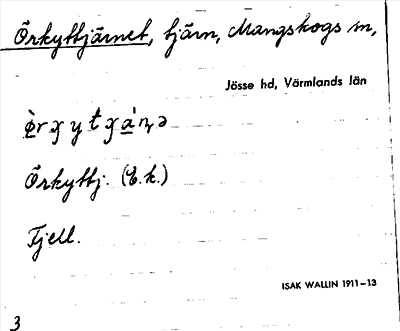 Örkyttjärnet, tjärn, Mangskogs sn,
Jösse hd, Värmlands län
Örkyttj. (E.k.)
Fjell.
ISAK WALLIN 1911–13
3